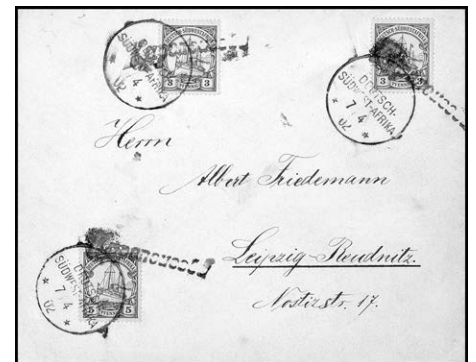 SÜDWEST-AFRIKA
4
02
3 3
DEUTSCH-
SÜDWEST-AFRIKA
7 4
02
3 3
Herrn
Albert Friedemann
Leipzig-Reudnitz.
Nostizstr. 17.
DEUTSCH-
SÜDWEST-AFRIKA
7 4
02
5 5